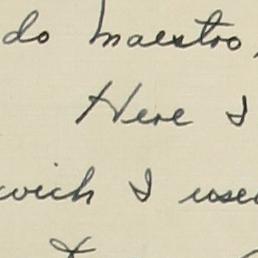 do maestro,
Here I
wich I used